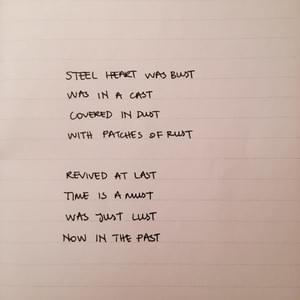 STEEL HEART WAS BUST
WAS IN A CAST
COVERED IN DUST
WITH PATCHES OF RUST
REVIVED AT LAST
TIME IS A MUST
WAS JUST LUST
NOW IN THE PAST